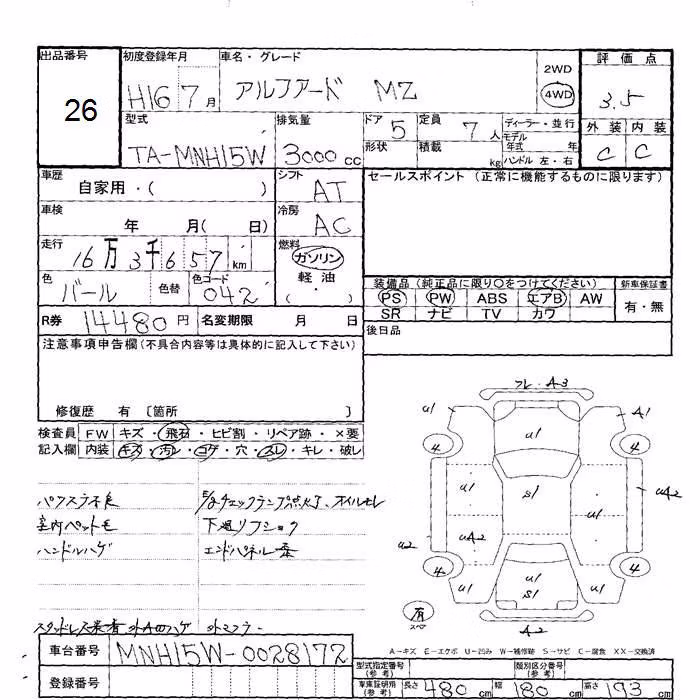 出品番号
26
初度登録年月
H16 7月
車名・グレード
アルファード MZ
2WD
4WD
評価点
3.5
外装 内装
C C
型式
TA-MNH15W
排気量
3000cc
ドア 5
形状
定員 7人
積載 kg
ディーラー・並行
モデル年式 年
ハンドル 左・右
車歴
自家用・( )
シフト
AT
セールスポイント(正常に機能するものに限ります)
車検
年 月( 日)
冷房
AC
走行
16万3千657km
燃料
ガソリン
軽油
・( )
色
パール
色替
色コード
042
装備品(純正品に限り○をつけてください)
新車保証書
PS PW ABS エアB AW
SR ナビ TV カワ
有・無
R券
14480円
名変期限 月 日
後日品
注意事項申告欄(不具合内容等は具体的に記入して下さい)
修復歴 有 〔箇所 〕
検査員記入欄
FW キズ・飛石・ヒビ割・リペア跡・×要
内装 キズ・汚レ・コゲ・穴・スレ・キレ・破レ
パワステ不良
E/gチェックランプ点灯、オイルモレ
室内ペット毛
下廻りフショク
ハンドルハゲ
エンドパネル
スタッドレス 外マフラー
フレ・A3
u1 A1
u1
4 4
u1 S1 u1 uA2
uA2
u2
4 4
u1 u1 S1 u1
有
スペア
A2
A-キズ E-エクボ U-凹み W-補修跡 S-サビ C-腐食 XX-交換済
車台番号
MNH15W-0028172
登録番号
型式指定番号(参考)
類別区分番号(参考)
車庫証明用(参考)
長さ 480cm 幅 180cm 高さ 193cm